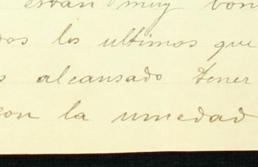 estan muy bon
dos los ultimos que
s alcansado tener
con la umedad